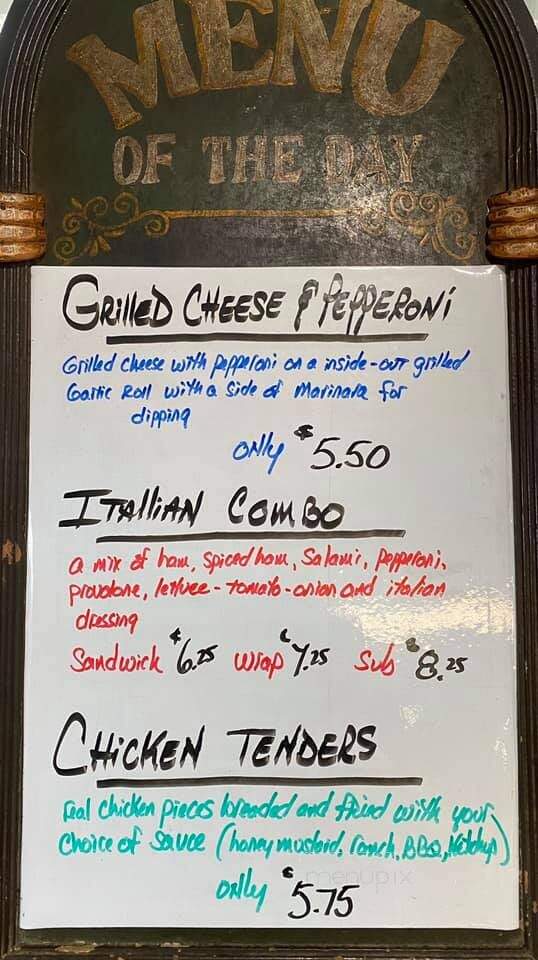 MENU
OF THE DAY
GRILLED CHEESE & PEPPERONI
Grilled cheese with pepperoni on a inside-out grilled
Garlic Roll with a side of Marinara for
dipping
ONly $5.50
ITALLIAN COMBO
a mix of ham, spiced ham, Salami, pepperoni,
provolone, lettuce-tomato-onion and italian
dressing
Sandwick $6.25 wrap $7.25 Sub $8.25
CHICKEN TENDERS
real chicken pieces breaded and fried with your
Choice of Sauce (honey mustard, ranch, BBQ, Ketchup)
ONly $5.75
menupix